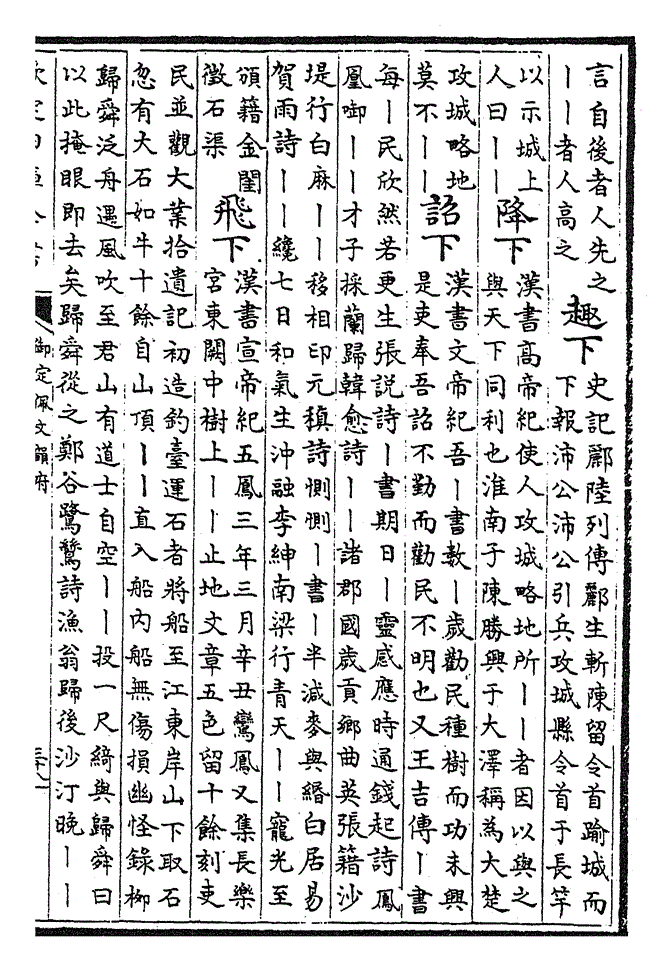 言自後者人先之
丨丨者人高之
趣下
史記酈陸列傳酈生斬陳留令首踰城而
下報沛公沛公引兵攻城縣令首于長竿
以示城上
人曰丨丨
降下
漢書髙帝紀使人攻城略地所丨丨者因以與之
與天下同利也淮南子陳勝興于大澤稱為大楚
攻城略地
莫不丨丨
詔下
漢書文帝紀吾丨書數丨歲勸民種樹而功未興
是吏奉吾詔不勤而勸民不明也又王吉傳丨書
每丨民欣然若更生張説詩丨書期日丨靈感應時通錢起詩鳳
凰啣丨丨才子採蘭歸韓愈詩丨丨諸郡國歲貢鄉曲英張籍沙
堤行白麻丨丨移相印元稹詩惻惻丨書丨半減麥與緡白居易
賀雨詩丨丨纔七日和氣生沖融李紳南梁行青天丨丨寵光至
頒籍金閨
徵石渠
飛下
漢書宣帝紀五鳳三年三月辛丑鸞鳳又集長樂
宮東闕中樹上丨丨止地文章五色留十餘刻吏
民並觀大業拾遺記初造釣臺運石者將船至江東岸山下取石
忽有大石如牛十餘自山頂丨丨直入船内船無傷損幽怪錄柳
歸舜泛舟遇風吹至君山有道士自空丨丨投一尺綺與歸舜曰
以此掩眼即去矣歸舜從之鄭谷鷺鷥詩漁翁歸後沙汀晚丨丨
御定佩文韻府